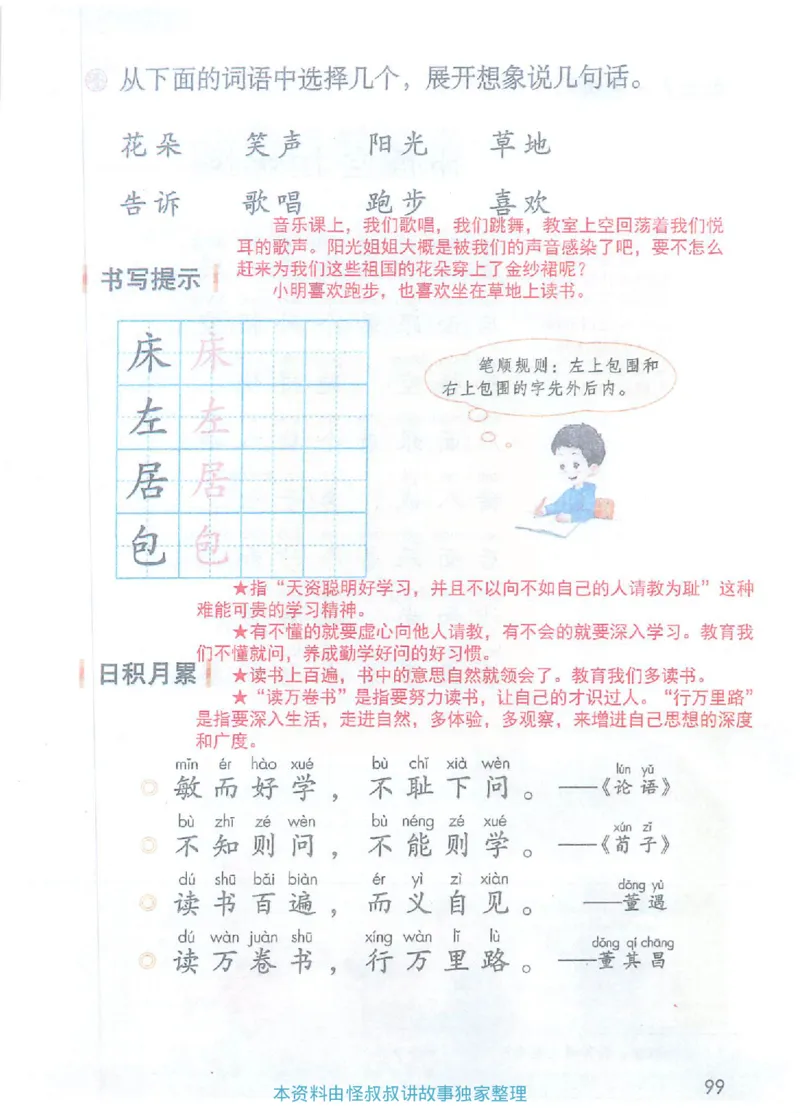 从下面的词语中选择几个，展开想象说几句话。
花朵 笑声 阳光 草地
告诉 歌唱 跑步 喜欢
音乐课上，我们歌唱，我们跳舞，教室上空回荡着我们悦
耳的歌声。阳光姐姐大概是被我们的声音感染了吧，要不怎么
赶来为我们这些祖国的花朵穿上了金纱裙呢？
小明喜欢跑步，也喜欢坐在草地上读书。
书写提示
床 床
左 左
居 居
包 包
笔顺规则：左上包围和
右上包围的字先外后内。
★指“天资聪明好学习，并且不以向不如自己的人请教为耻”这种
难能可贵的学习精神。
★有不懂的就要虚心向他人请教，有不会的就要深入学习。教育我
们不懂就问，养成勤学好问的好习惯。
日积月累
★读书上百遍，书中的意思自然就领会了。教育我们多读书。
★“读万卷书”是指要努力读书，让自己的才识过人。“行万里路”
是指要深入生活，走进自然，多体验，多观察，来增进自己思想的深度
和广度。
mǐn ér hào xué bù chǐ xià wèn lún yǔ
敏而好学，不耻下问。——《论语》
bù zhī zé wèn bù néng zé xué xún zǐ
不知则问，不能则学。——《荀子》
dú shū bǎi biàn ér yì zì xiàn dǒng yù
读书百遍，而义自见。——董遇
dú wàn juàn shū xíng wàn lǐ lù dǒng qí chāng
读万卷书，行万里路。——董其昌
99
本资料由怪叔叔讲故事独家整理